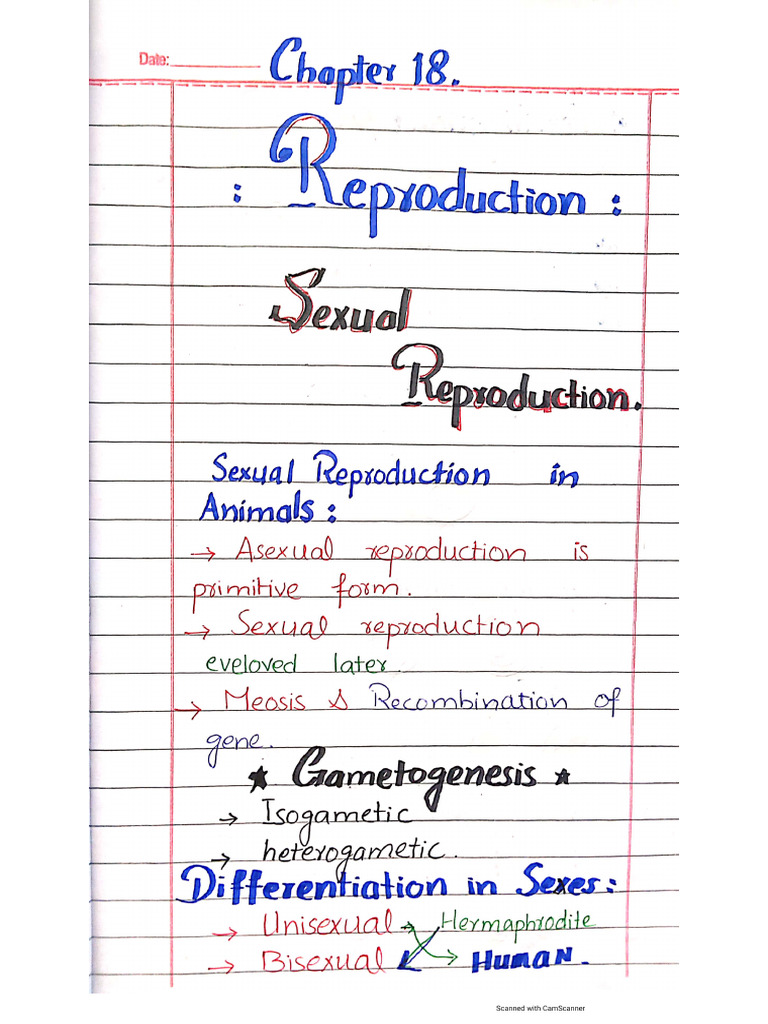 Date:
Chapter 18.
: Reproduction :
Sexual
Reproduction.
Sexual Reproduction in
Animals :
→ Asexual reproduction is
primitive form.
→ Sexual reproduction
eveloved later.
→ Meosis & Recombination of
gene.
★ Gametogenesis ★
→ Isogametic
→ heterogametic.
Differentiation in Sexes:
→ Unisexual → Hermaphrodite
→ Bisexual → Human.
Scanned with CamScanner